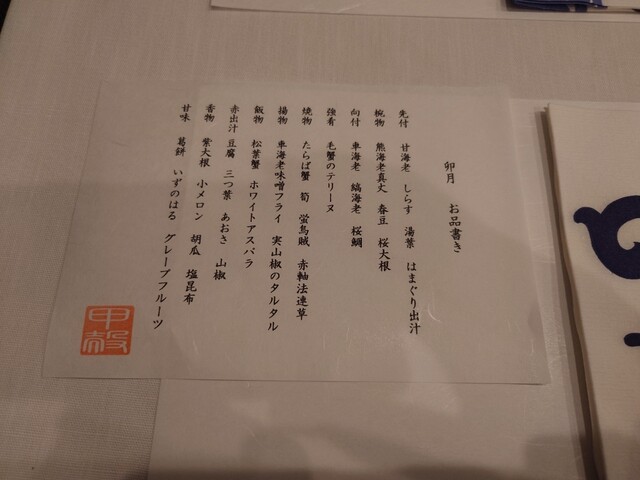 卯月 お品書き
先付 甘海老 しらす 湯葉 はまぐり出汁
椀物 熊海老真丈 春豆 桜大根
向付 車海老 縞海老 桜鯛
強肴 毛蟹のテリーヌ
焼物 たらば蟹 筍 蛍烏賊 赤軸法連草
揚物 車海老味噌フライ 実山椒のタルタル
飯物 松葉蟹 ホワイトアスパラ
赤出汁 豆腐 三つ葉 あおさ 山椒
香物 紫大根 小メロン 胡瓜 塩昆布
甘味 葛餅 いずのはる グレープフルーツ
甲殻